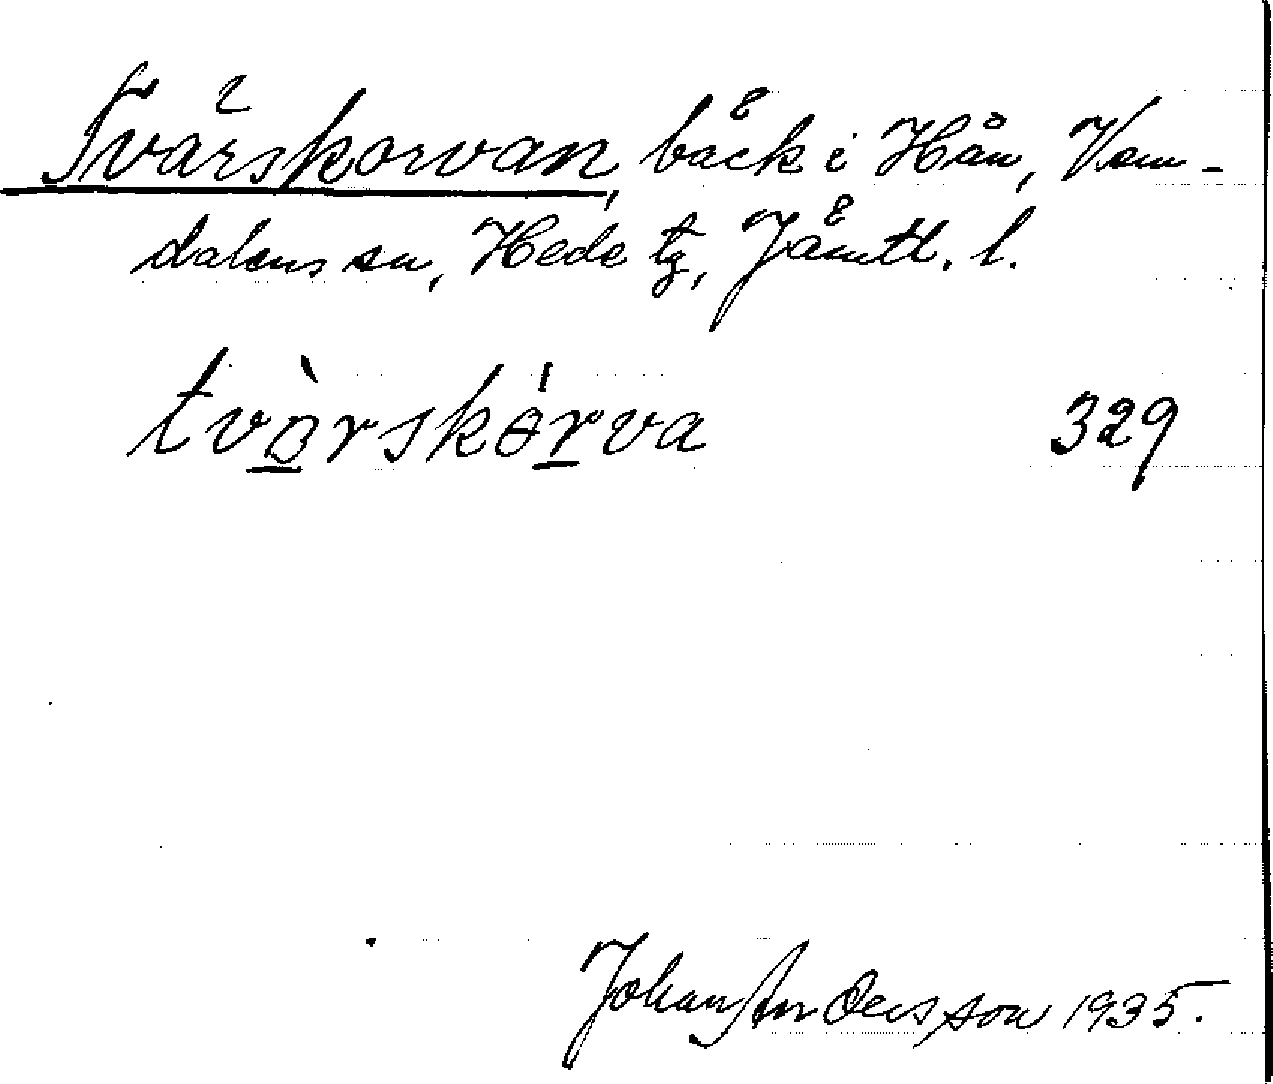 Tvärskorvan, bäck i Hån, Vem-
dalens sn, Hede tg, Jämtl. l.
tvò̲rskɵ́r̲va 329
Johan Andersson 1935.